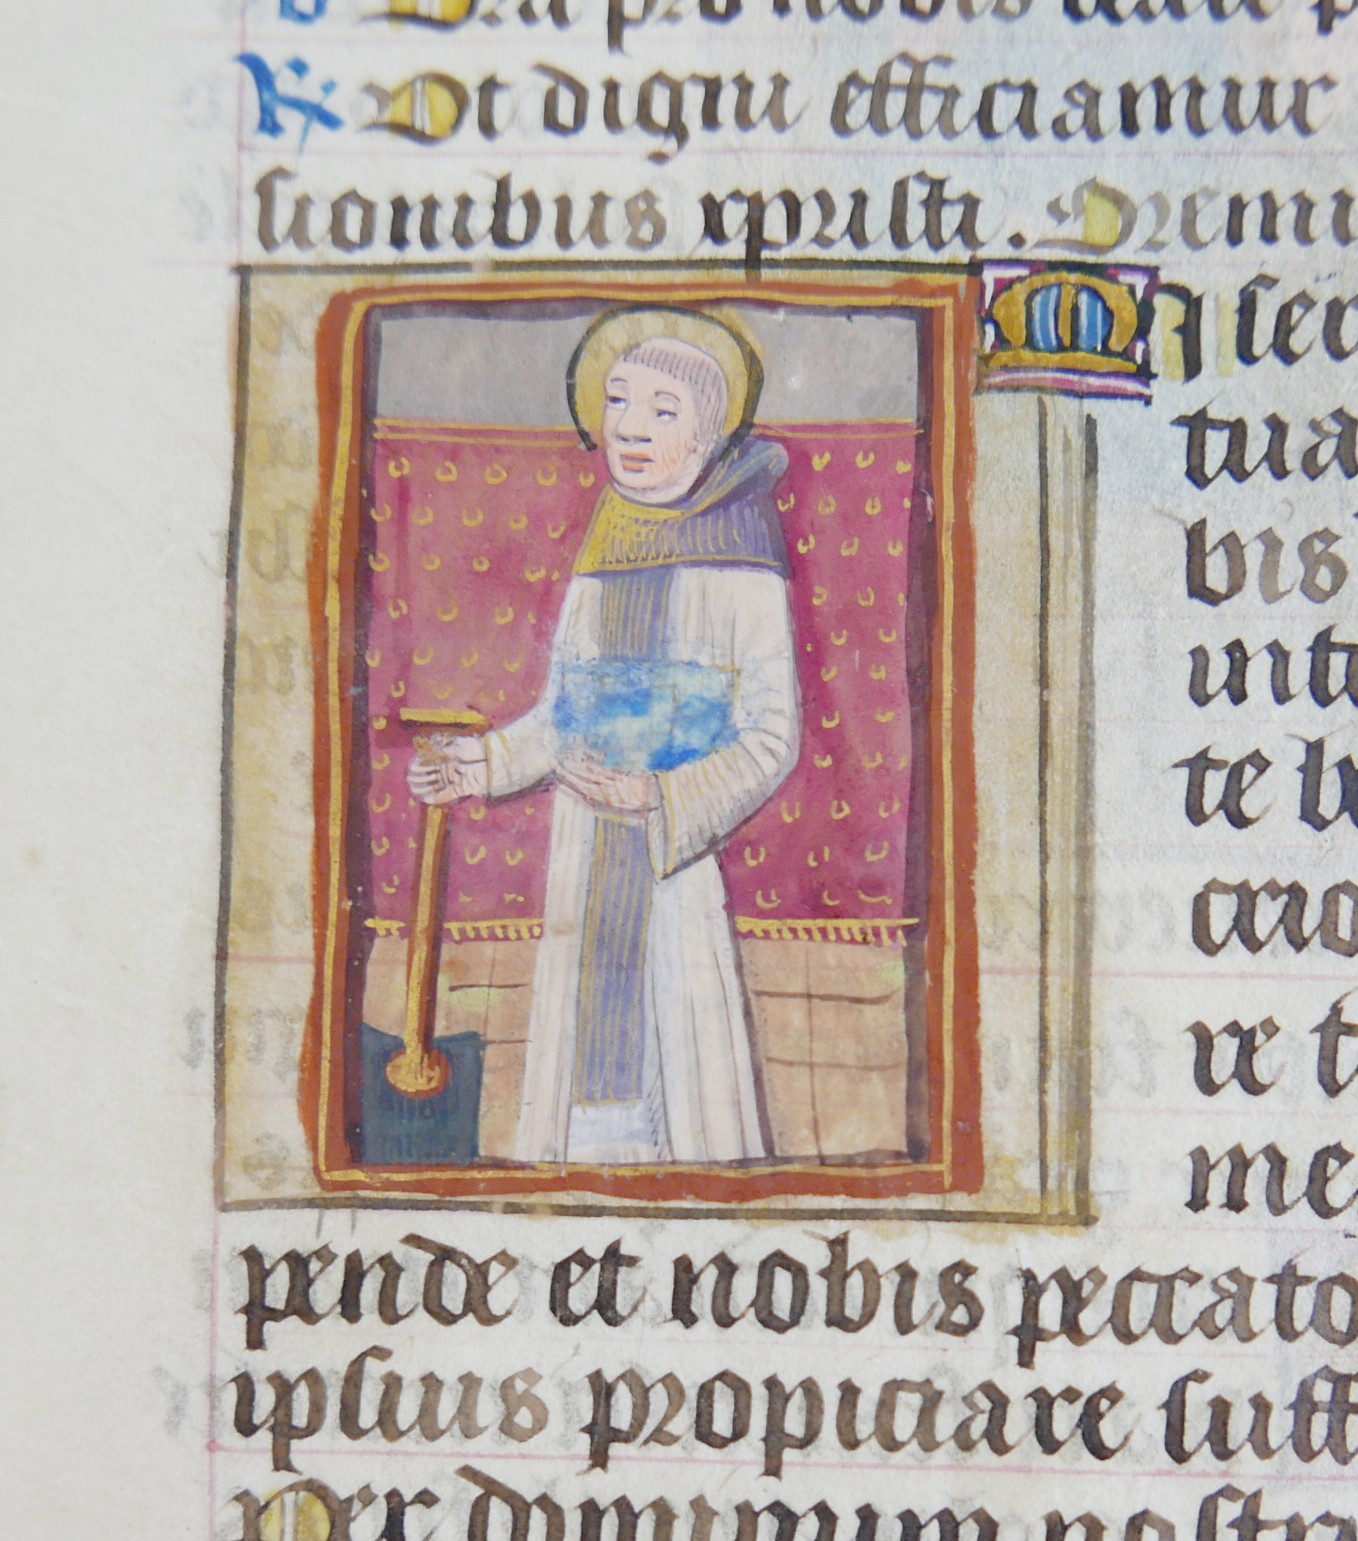 Ora pro nobis beate p
℟ Ut digni efficiamur
sionibus xpristi. Oremu
ser
tua
bis
inte
te be
ccio
re t
me
pende et nobis peccato
ipsius propiciare suff
Per dominum nostru